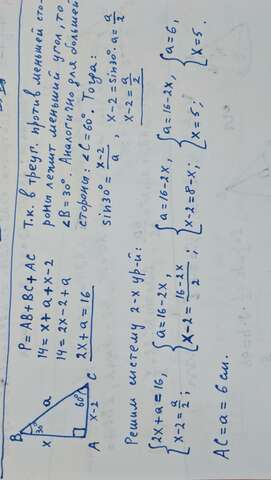 B
30°
x
a
60°
A
x-2
C
P = AB + BC + AC
14 = x + a + x - 2
14 = 2x - 2 + a
2x + a = 16
Т.к. в треуг. против меньшей сто-
роны лежит меньший угол, то
∠B = 30°. Аналогично для большей
стороны: ∠C = 60°. Тогда:
sin30° = x-2/a, x-2 = sin30°·a = a/2
x-2 = a/2
Решим систему 2-х ур-й:
{2x + a = 16, {a = 16 - 2x, {a = 16 - 2x, {a = 16 - 2x, {a = 6,
{x-2 = a/2; {x-2 = 16-2x/2; {x-2 = 8-x; {x = 5; {x = 5.
AC = a = 6 см.